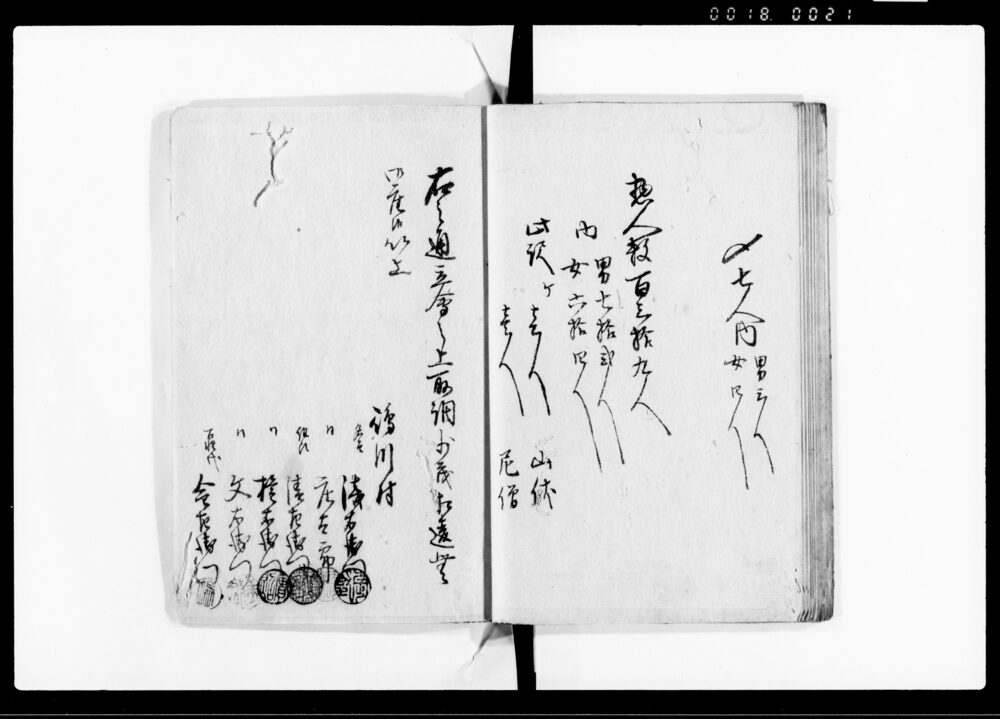 0018 0021
〆七人内
男三人
女四人
惣人数百三拾九人
内
男七拾弐人
女六拾四人
此訳ケ
壱人 山伏
壱人 尼僧
右之通立会之上取調少茂相違無
御座候以上
川村
清右衛門
〃
庄三郎
組頭
清左衛門
〃
権右衛門
〃
文右衛門
百姓代